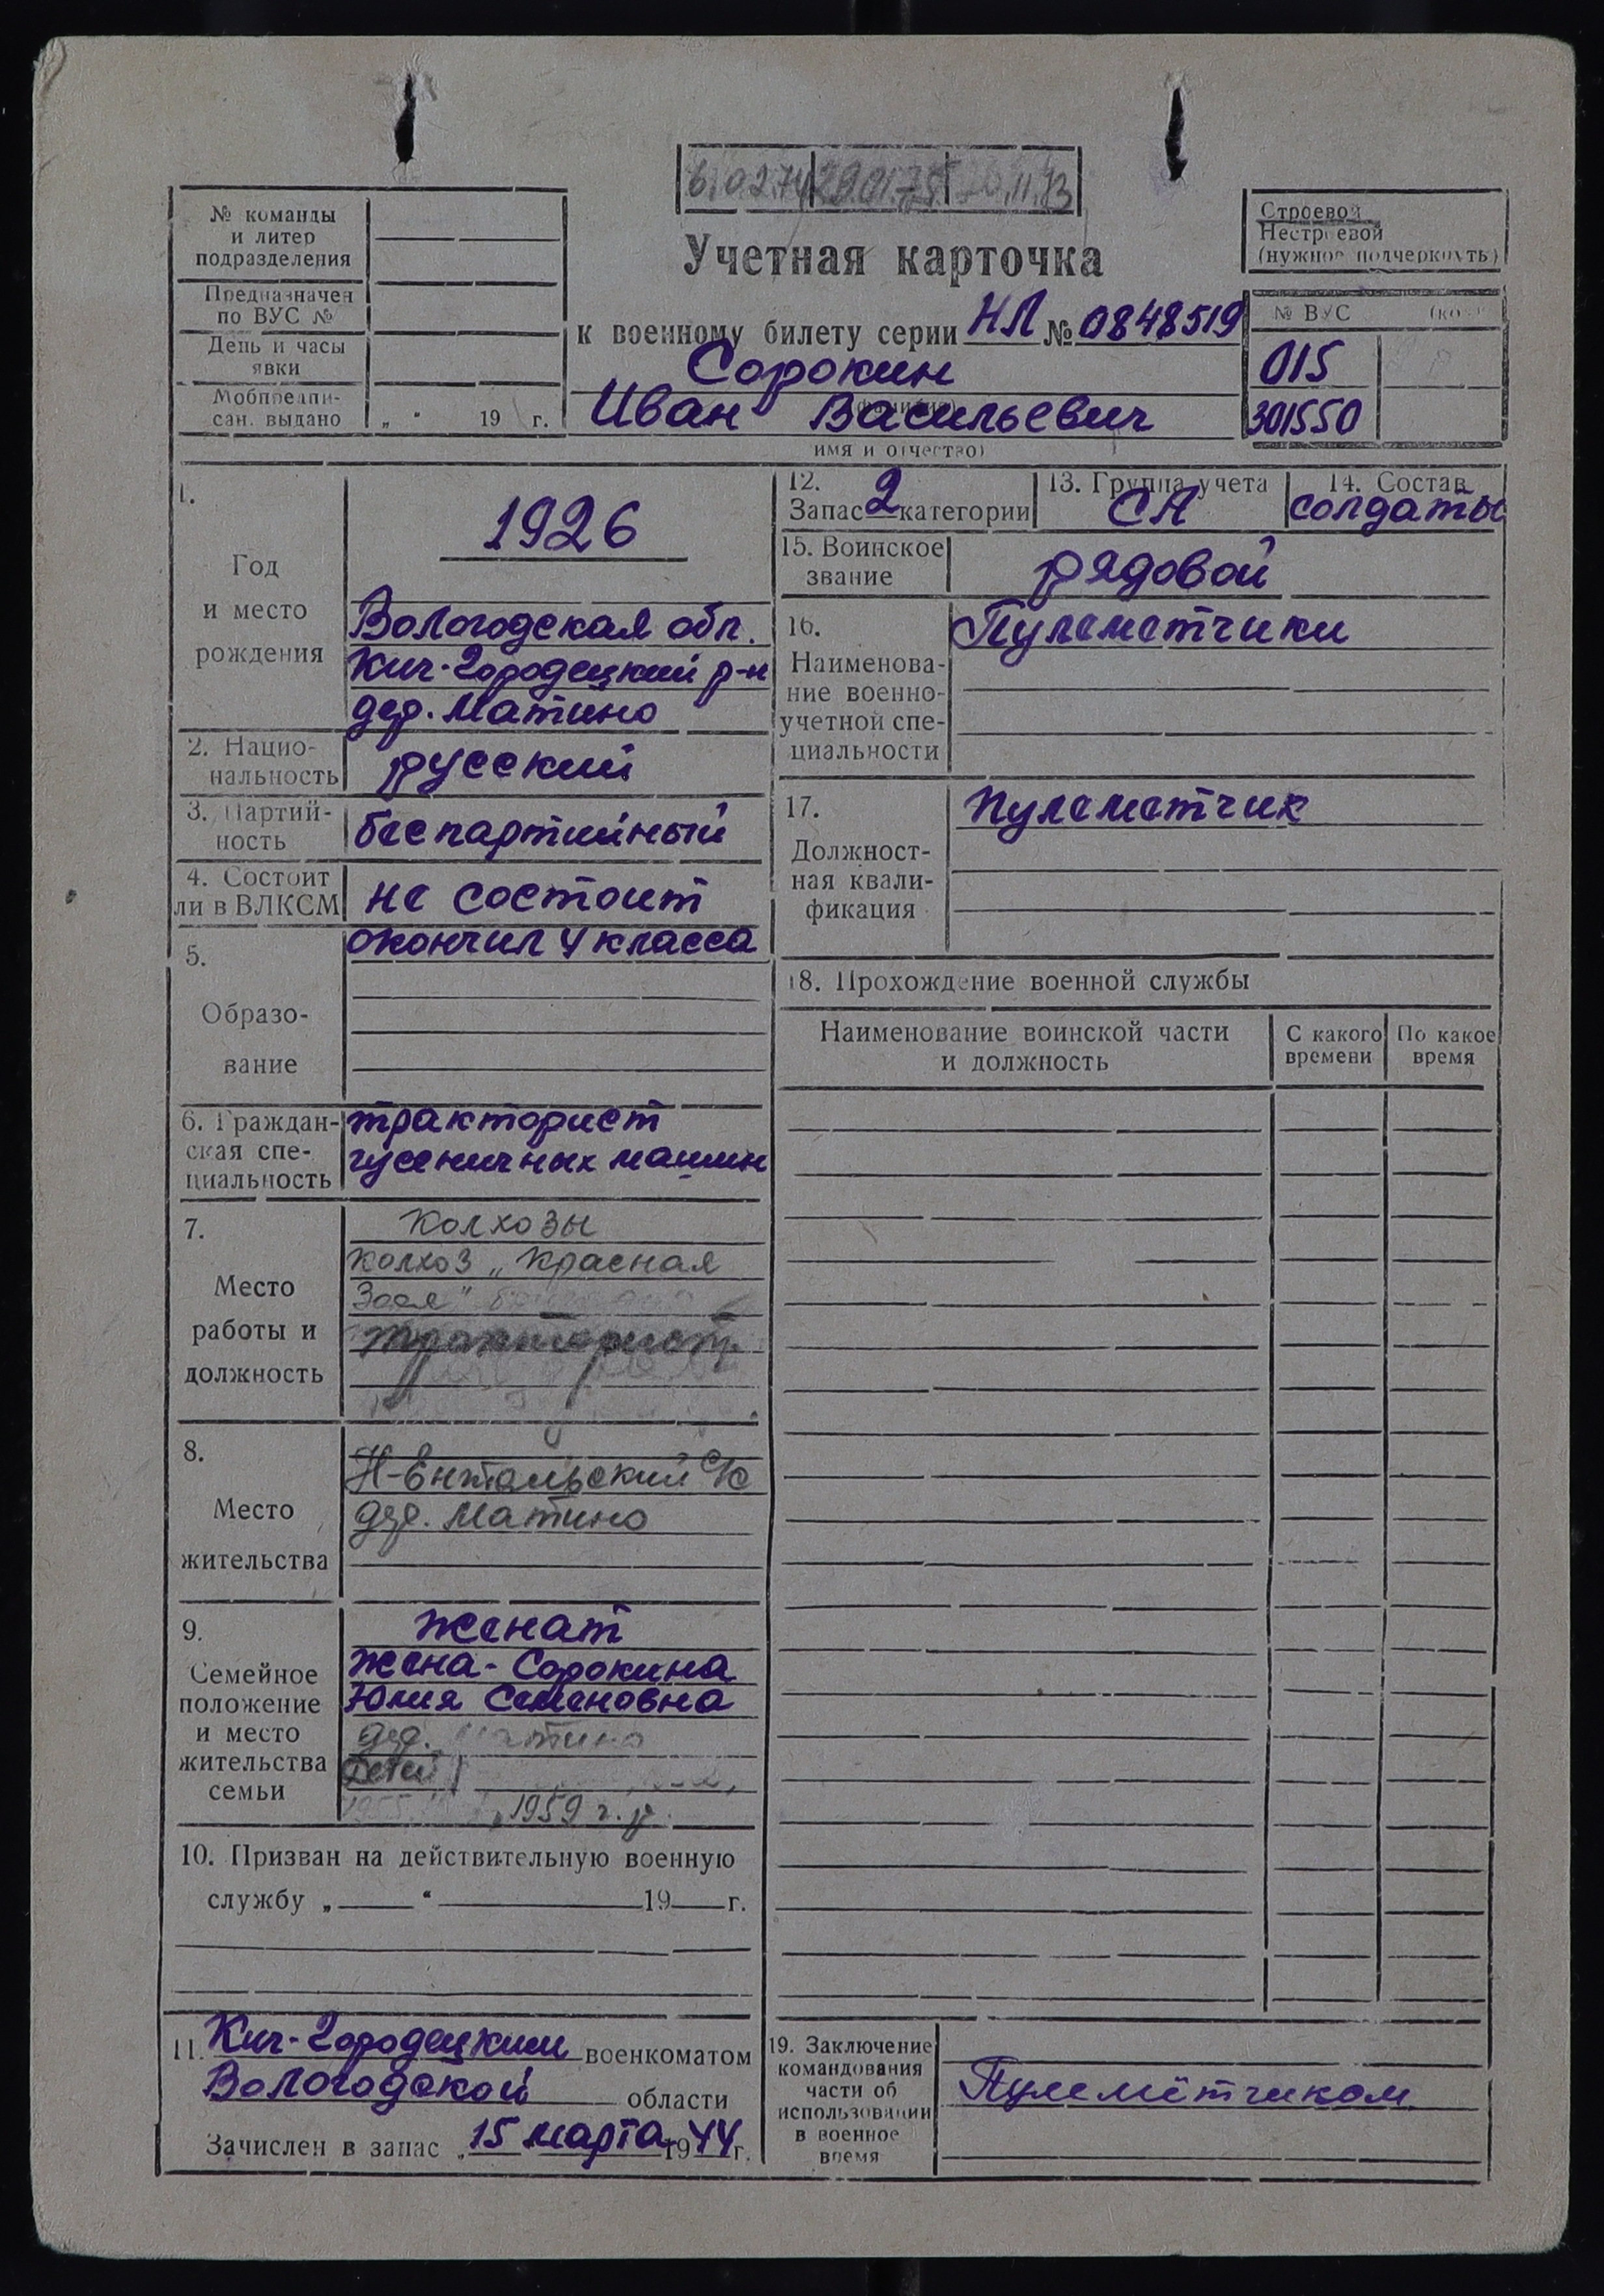 6.02.74 29.01.75 11.73
№ команды
и литер
подразделения
Предназначен
по ВУС №
День и часы
явки
Мобпредпи-
сан. выдано „ “ 19 г.
Учетная карточка
к военному билету серии НЛ № 0848519
Сорокин
Иван Васильевич
имя и отчество)
Строевой
Нестроевой
(нужное подчеркнуть)
№ ВУС
015
301550
1.
Год
и место
рождения
1926
Вологодская обл.
Кич-Городецкий р-н
дер. Матино
2. Нацио-
нальность
русский
3. Партий-
ность
беспартийный
4. Состоит
ли в ВЛКСМ
не состоит
5.
Образо-
вание
окончил 4 класса
6. Граждан-
ская спе-
циальность
тракторист
гусеничных машин
7.
Место
работы и
должность
Колхозы
колхоз „Красная
Зоря"
тракторист
8.
Место
жительства
Н-Ентальский с/с
дер. Матино
9.
Семейное
положение
и место
жительства
семьи
женат
жена - Сорокина
Юлия Семеновна
дер. Матино
Детей
1955, 1959 г.р.
10. Призван на действительную военную
службу „ “ 19 г.
11. Кич-Городецким военкоматом
Вологодской области
Зачислен в запас „ 15 марта 1944 г.
12.
Запас 2 категории
13. Группа учета
СА
14. Состав
солдаты
15. Воинское
звание
рядовой
16.
Наименова-
ние военно-
учетной спе-
циальности
Пулеметчики
17.
Должност-
ная квали-
фикация
Пулеметчик
18. Прохождение военной службы
Наименование воинской части
и должность
С какого
времени
По какое
время
19. Заключение
командования
части об
использовании
в военное
время
Пулемётчиком